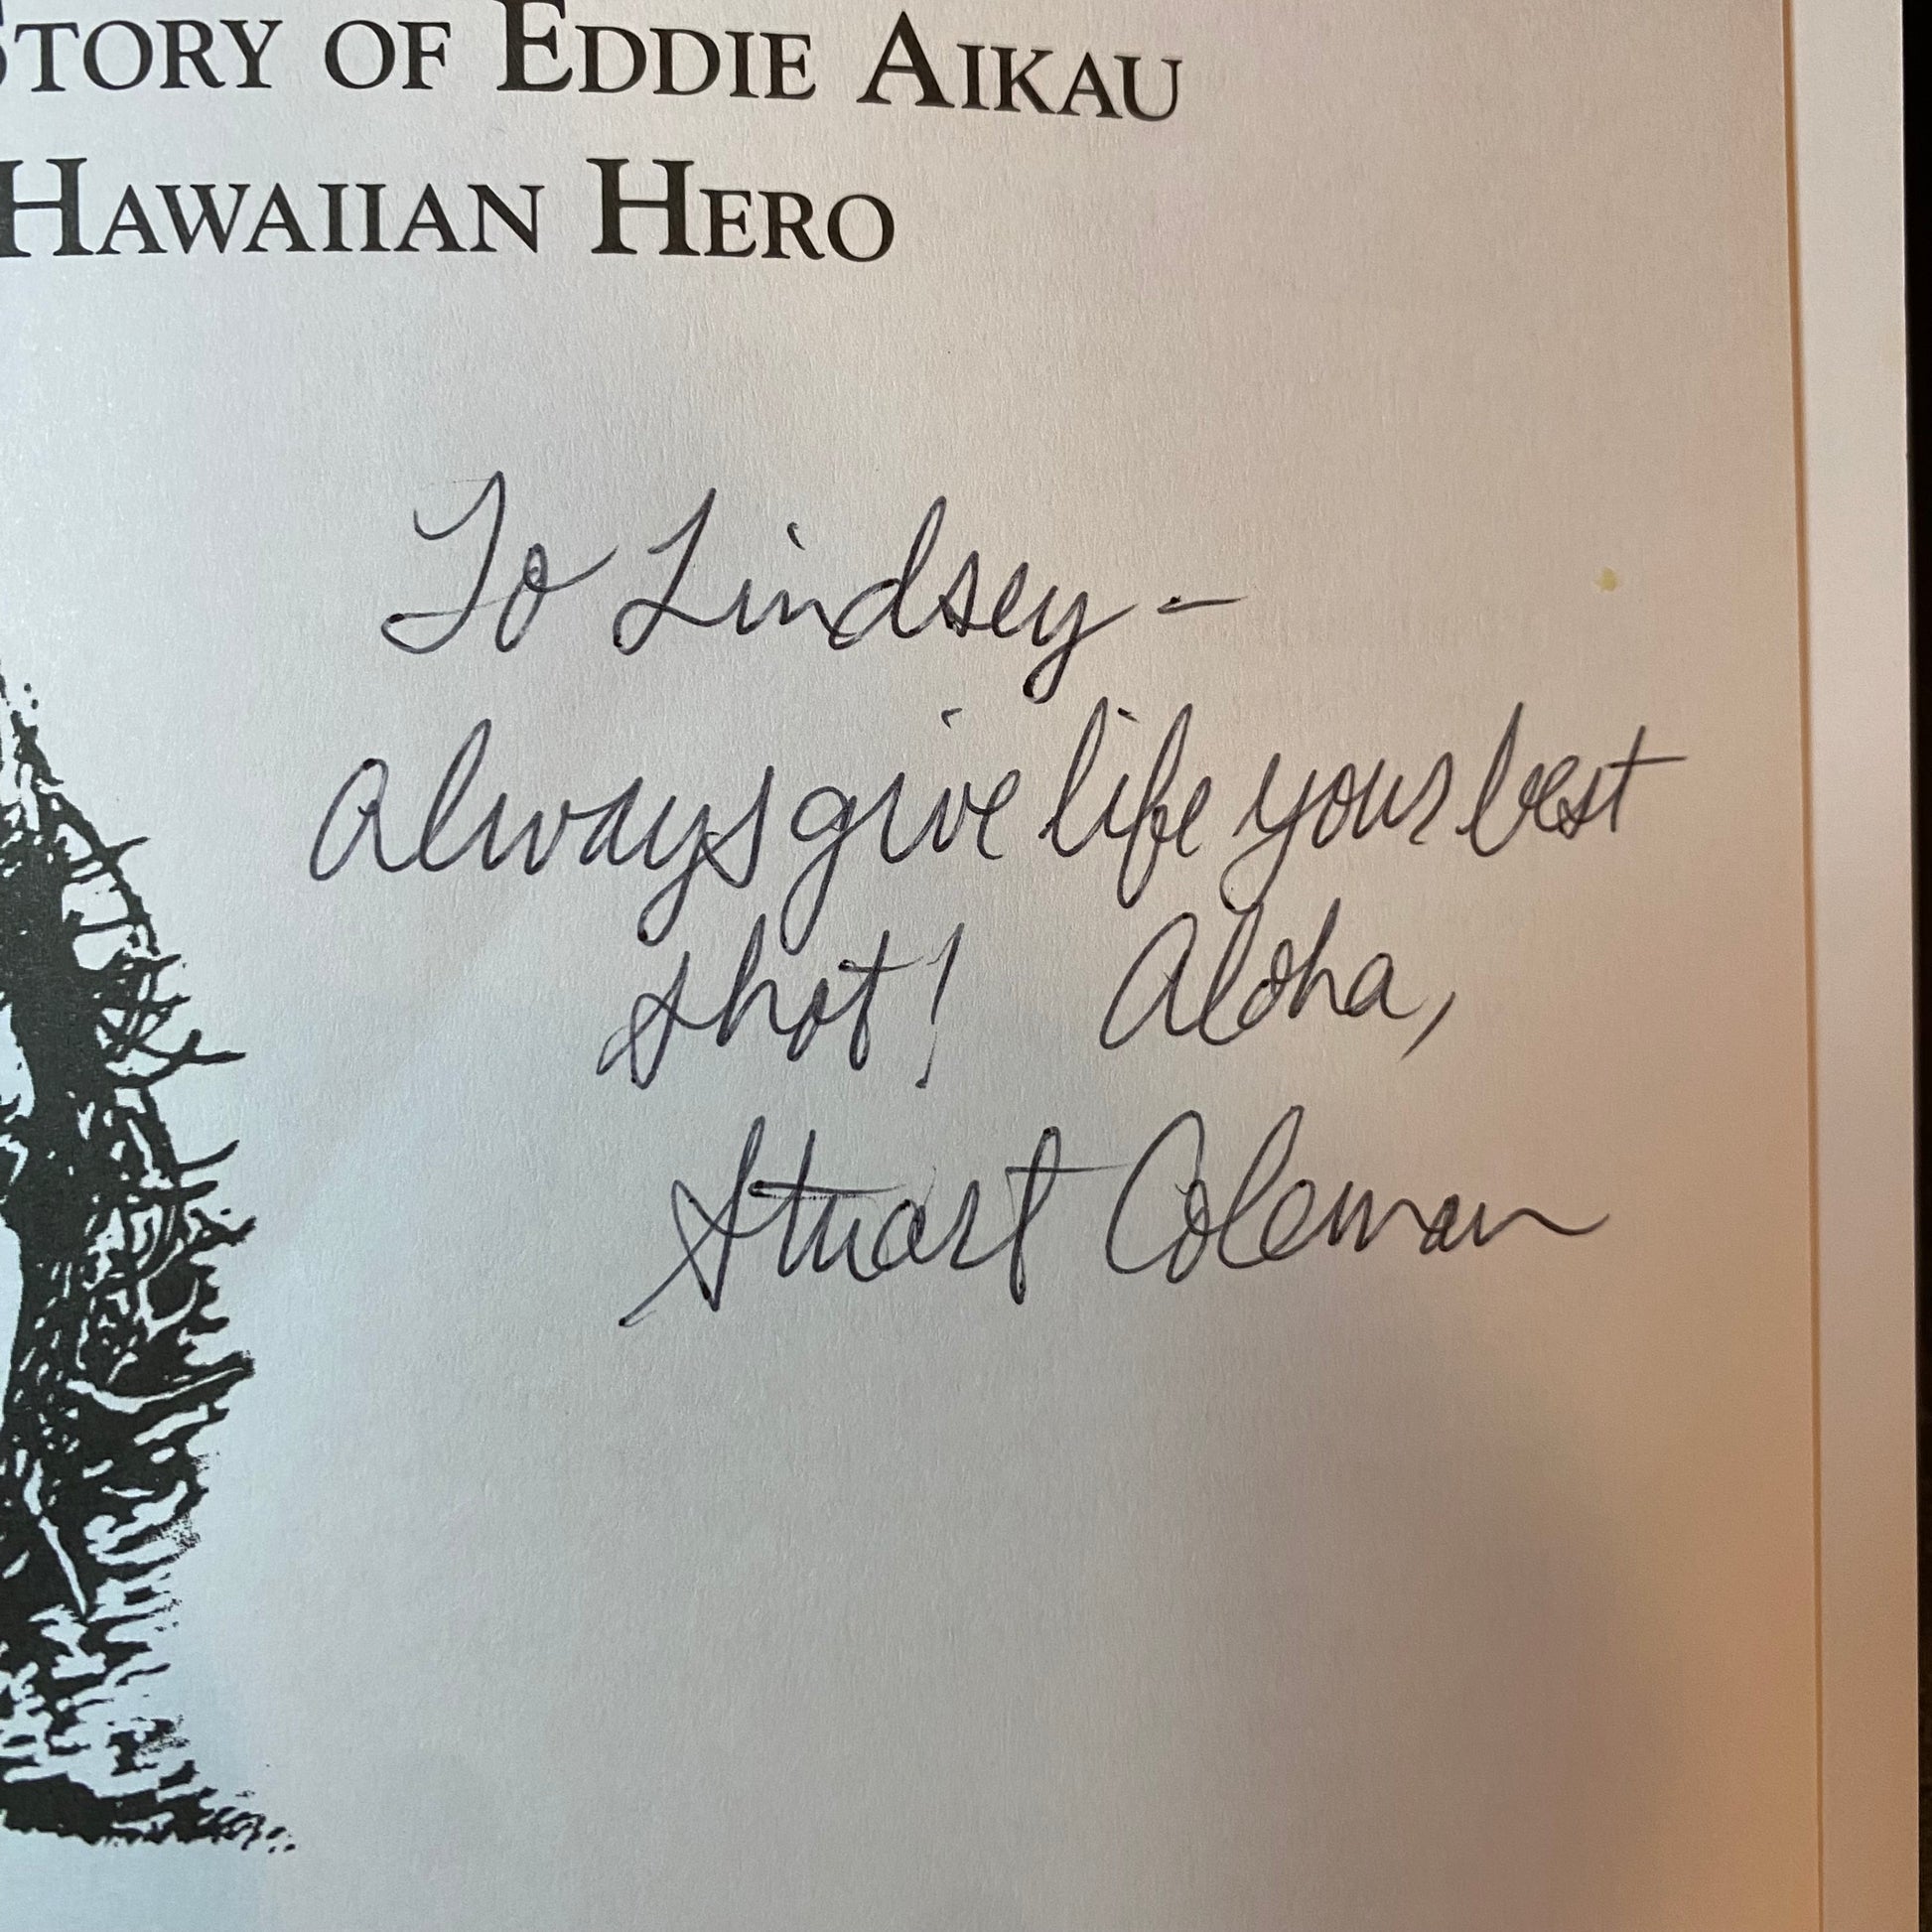 STORY OF EDDIE AIKAU
HAWAIIAN HERO
To Lindsey -
Always give life your best
shot! Aloha,
Stuart Coleman